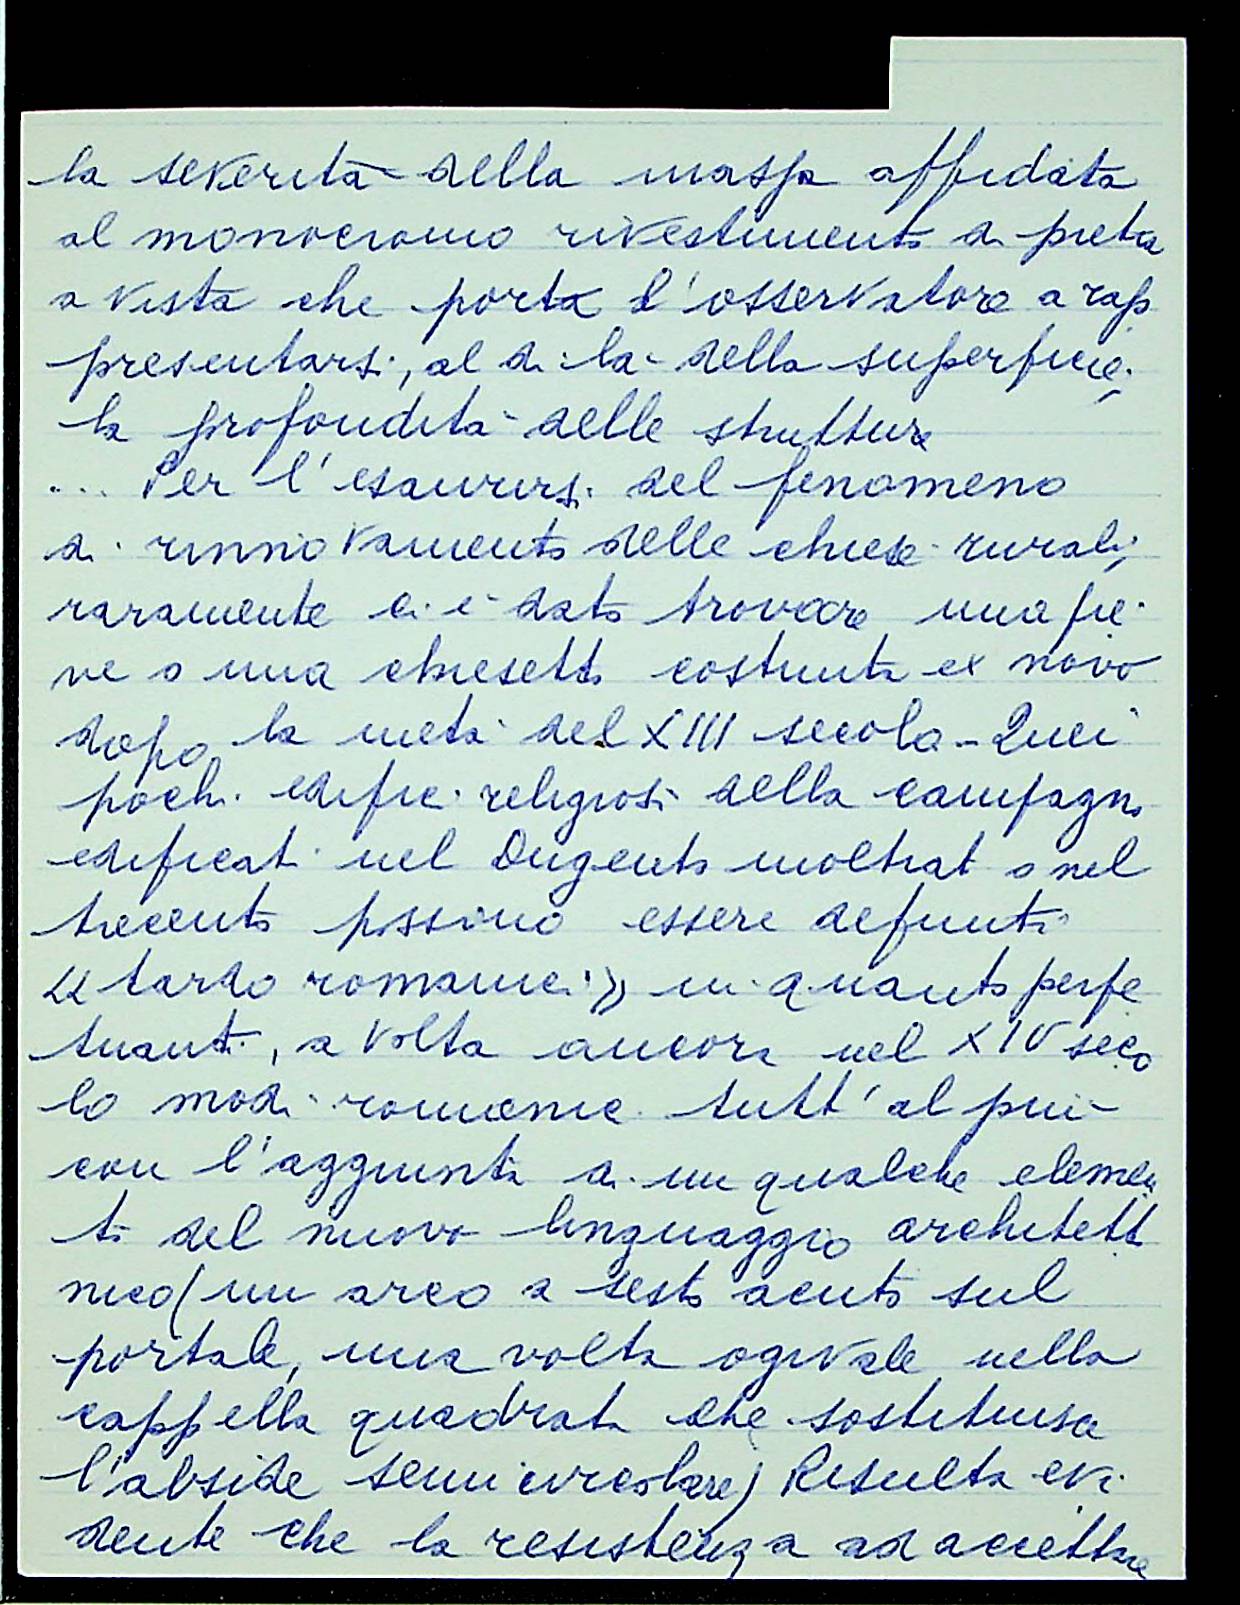 la severità della massa affidata
al monocromo rivestimento di pietra
a vista che porta l'osservatore a rap
presentarsi, al di là della superficie,
la profondità delle strutture
... Per l'esaurirsi del fenomeno
di rinnovamento delle chiese rurali,
raramente ci è dato trovare una pie
ve o una chiesetta costruita ex novo
dopo la metà del XIII secolo - Quei
pochi edifici religiosi della campagna
edificati nel Dugento inoltrato o nel
trecento possono essere definiti
«tardo romanici» in quanto perpe
tuanti, a volta ancora nel XIV seco
lo modi romanici tutt'al più
con l'aggiunta di un qualche elemen
to del nuovo linguaggio architett
nico (un arco a sesto acuto sul
portale, una volta ogivale nella
cappella quadrata che sostituisce
l'abside semicircolare) Risulta evi
dente che la resistenza ad accettare